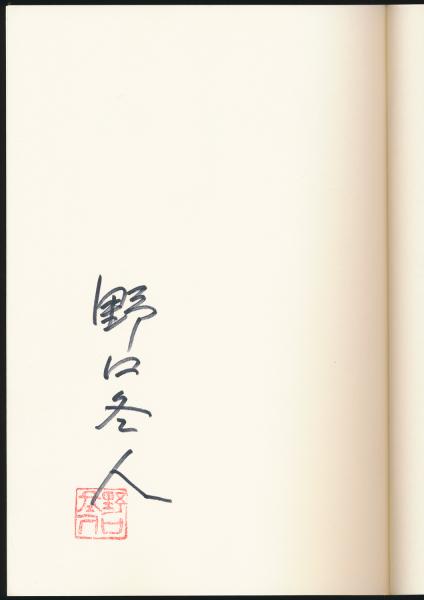 野口冬人
野口冬人